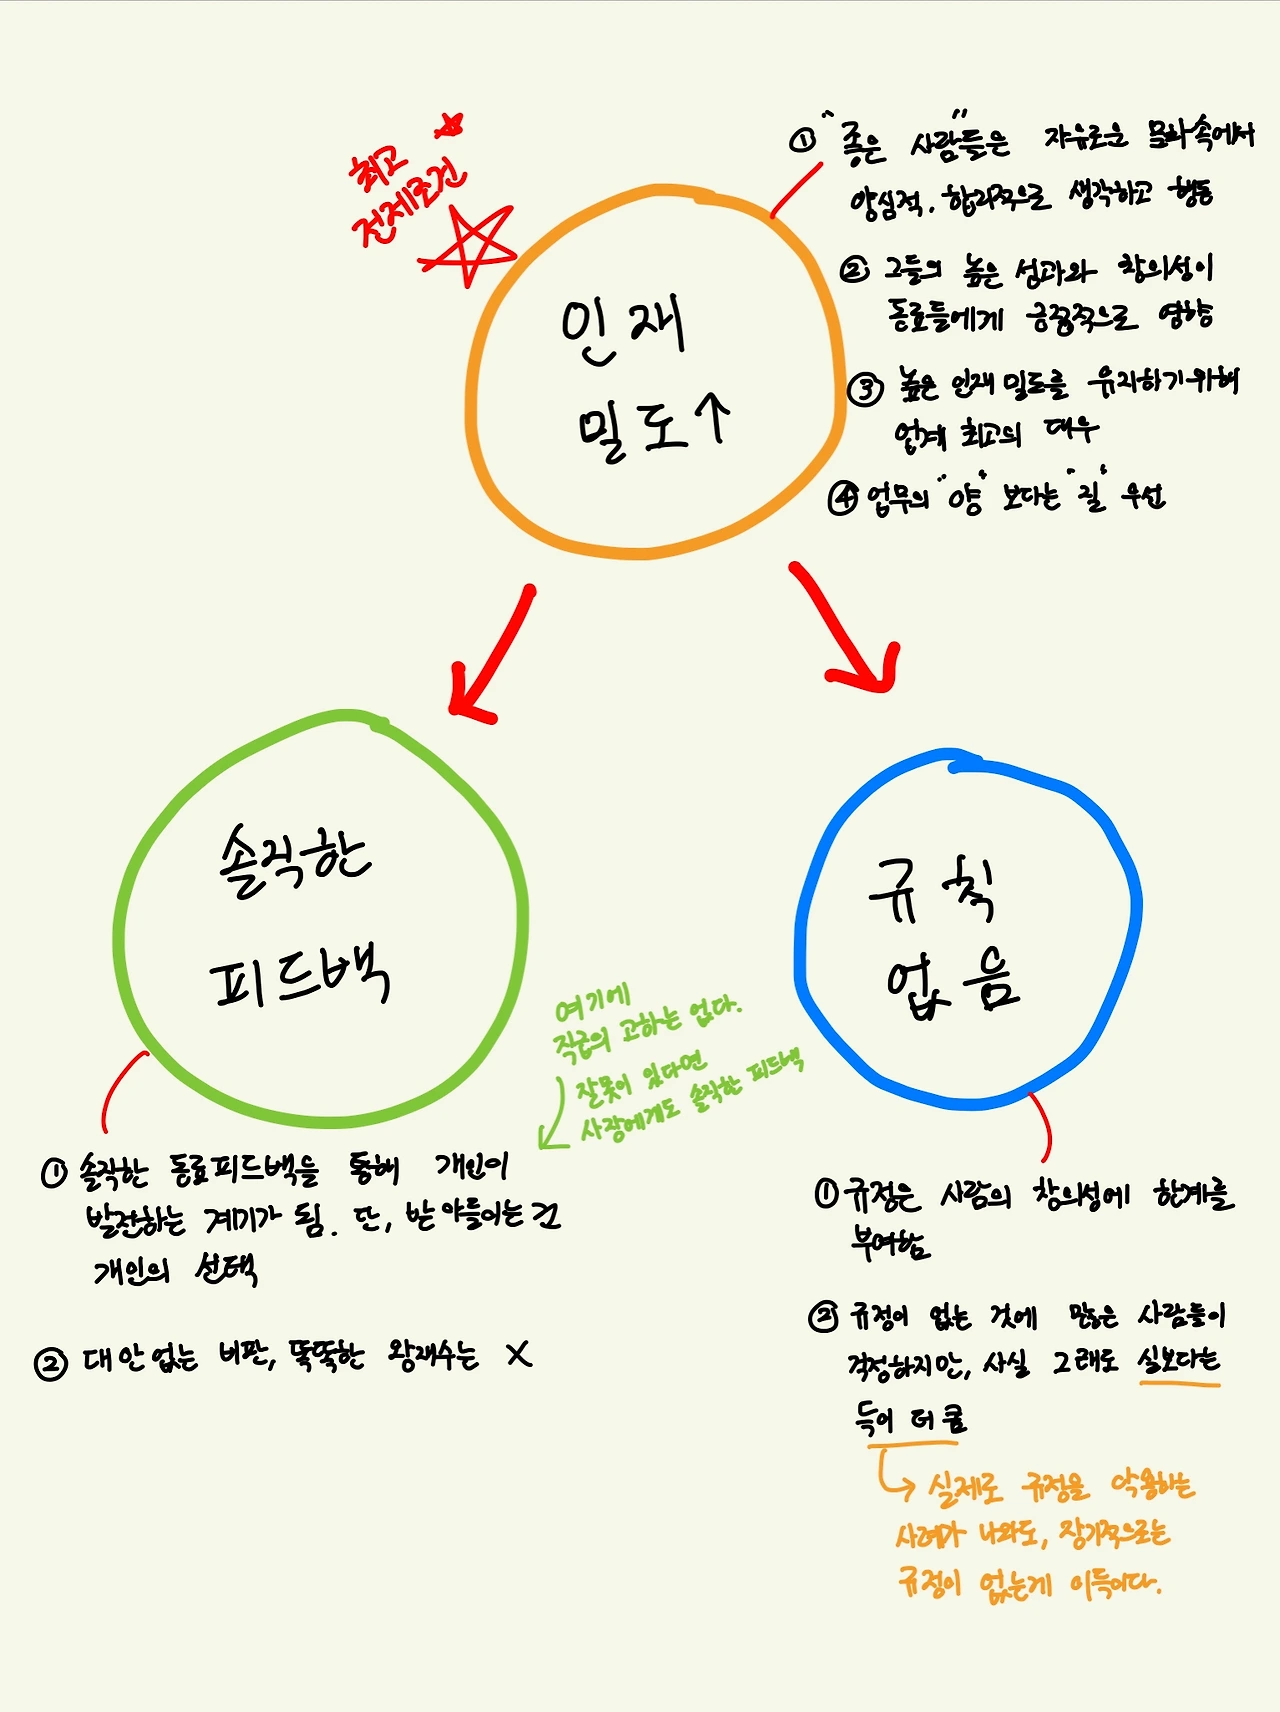 최고
전제조건
인재
밀도↑
① "좋은 사람"들은 자유로운 문화속에서
양심적, 합리적으로 생각하고 행동
② 그들의 높은 성과와 창의성이
동료들에게 긍정적으로 영향
③ 높은 인재 밀도를 유지하기위해
업계 최고의 대우
④ 업무의 "양" 보다는 "질" 우선
솔직한
피드백
여기에
직급의 고하는 없다.
잘못이 있다면
사장에게도 솔직한 피드백
① 솔직한 동료피드백을 통해 개인이
발전하는 계기가 됨. 단, 받아들이는 건
개인의 선택
② 대안없는 비판, 똑똑한 왕재수는 X
규칙
없음
① 규정은 사람의 창의성에 한계를
부여함
② 규정이 없는 것에 많은 사람들이
걱정하지만, 사실 그래도 실보다는
득이 더 큼
실제로 규정을 악용하는
사례가 나와도, 장기적으로는
규정이 없는게 이득이다.